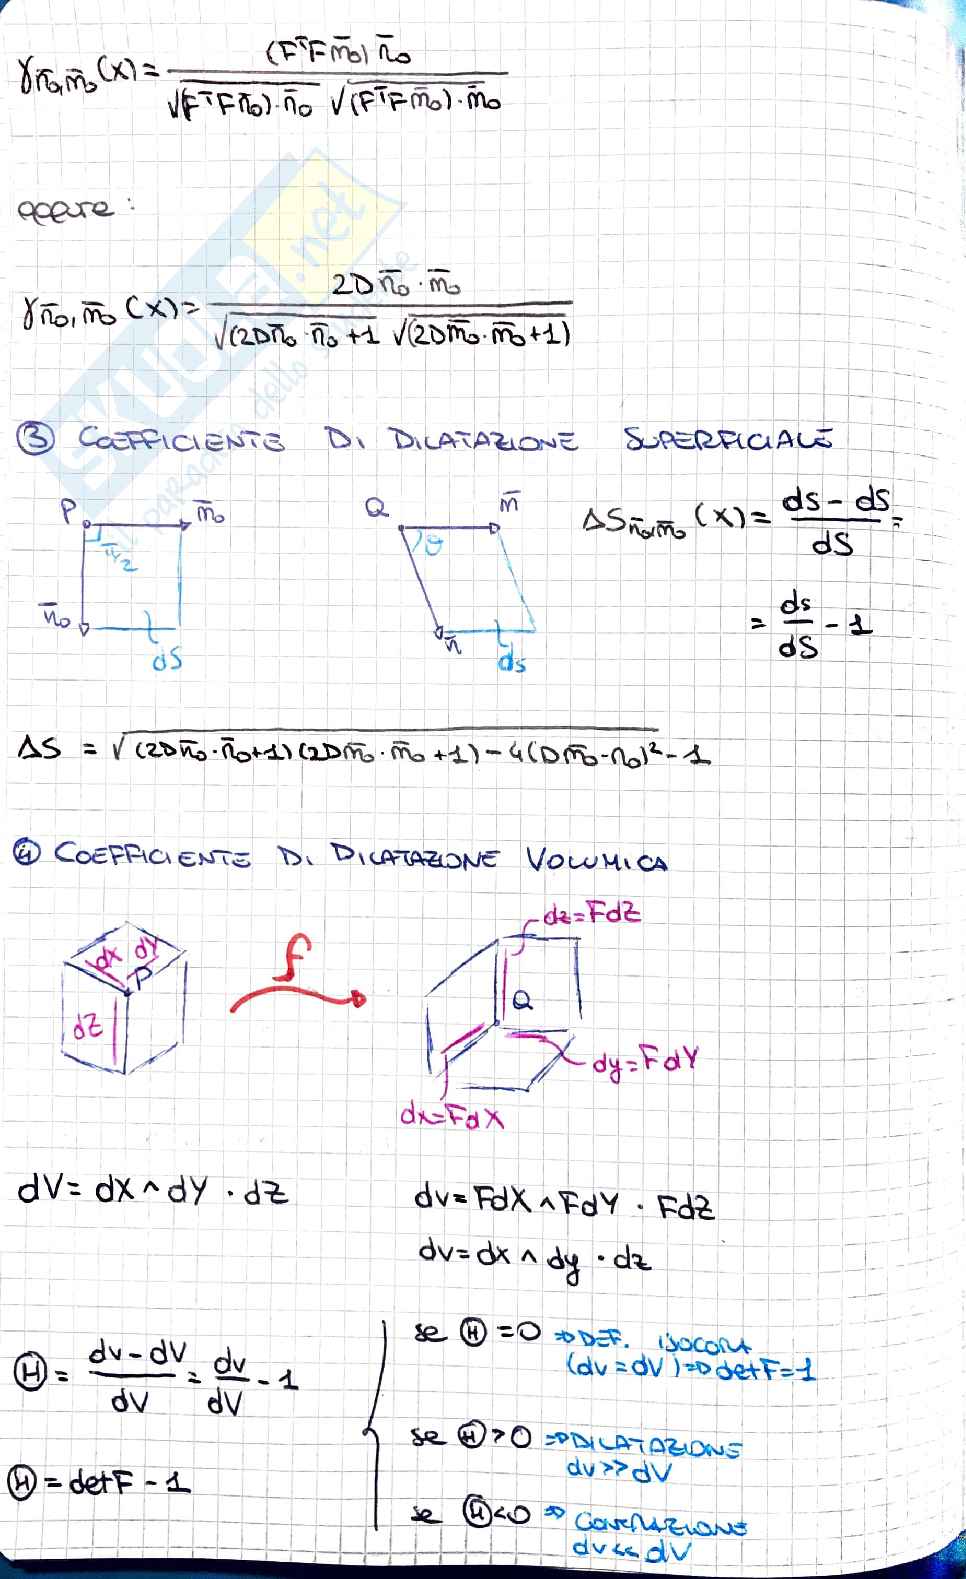 γn̄₀,m̄₀(X) = (FᵀF m̄₀) n̄₀ / √(FᵀF n̄₀)·n̄₀ √(FᵀF m̄₀)·m̄₀
oppure:
γn̄₀,m̄₀(X) = 2D n̄₀·m̄₀ / √(2D n̄₀·n̄₀+1 √(2D m̄₀·m̄₀+1)
SKUOLA.net
③ COEFFICIENTE DI DILATAZIONE SUPERFICIALE
P m̄₀ Q m̄ ΔS n̄₀,m̄₀ (X) = ds - dS / dS =
π/2 θ
n̄₀ dS n̄ ds = ds/dS - 1
ΔS = √(2D n̄₀·n̄₀+1)(2D m̄₀·m̄₀+1) - 4(D m̄₀·n₀)² - 1
④ COEFFICIENTE DI DILATAZIONE VOLUMICA
dz=FdZ
dX dY P f
dZ Q
dy=FdY
dx=FdX
dV = dX ∧ dY · dZ dv = FdX ∧ FdY · FdZ
dv = dx ∧ dy · dz
Ⓗ = dv - dV / dV = dv/dV - 1
Ⓗ = det F - 1
se Ⓗ = 0 ⇒ DEF. ISOCORA
(dv = dV) ⇒ det F = 1
se Ⓗ > 0 ⇒ DILATAZIONE
dv >> dV
se Ⓗ < 0 ⇒ CONTRAZIONE
dv << dV